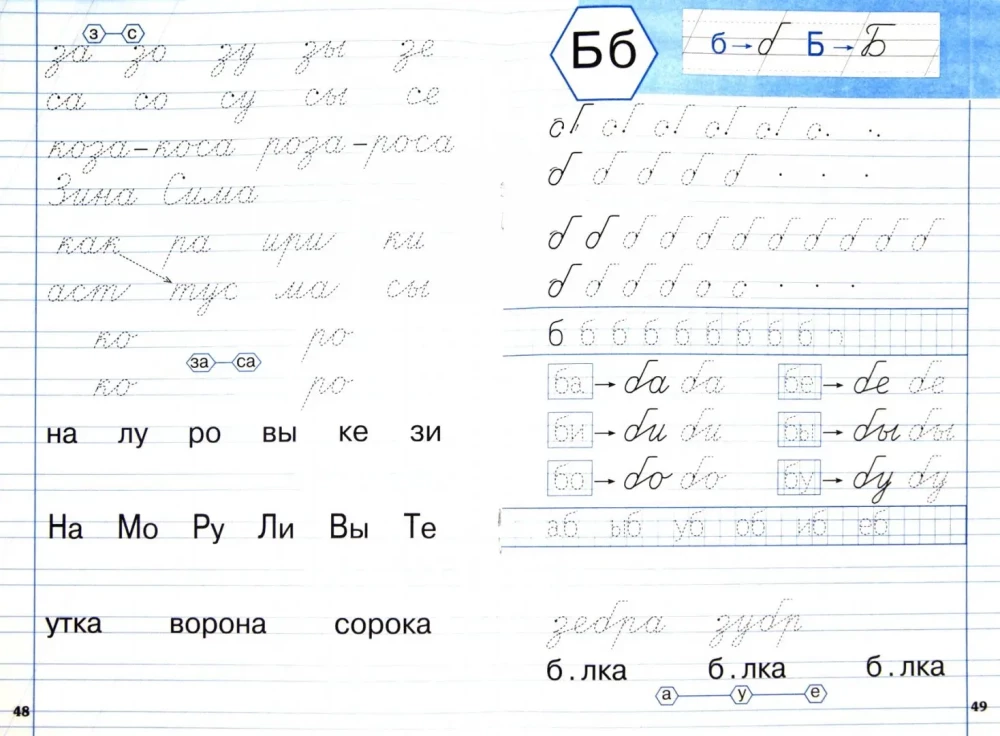 з с
за зо зу зы зе
са со су сы се
коза-коса роза-роса
Зина Сима
как ра ири ки
аст тус ма сы
ко ро
за са
ко ро
на лу ро вы ке зи
На Мо Ру Ли Вы Те
утка ворона сорока
48
Бб
б → б Б → Б
б б б б б
б б б б б б б б б б б
б б б б
б б б б б б б б б
ба → ба ба бе → бе бе
би → би би бы → бы бы
бо → бо бо бу → бу бу
аб ыб уб об иб еб
зебра зубр
б.лка б.лка б.лка
а у е
49